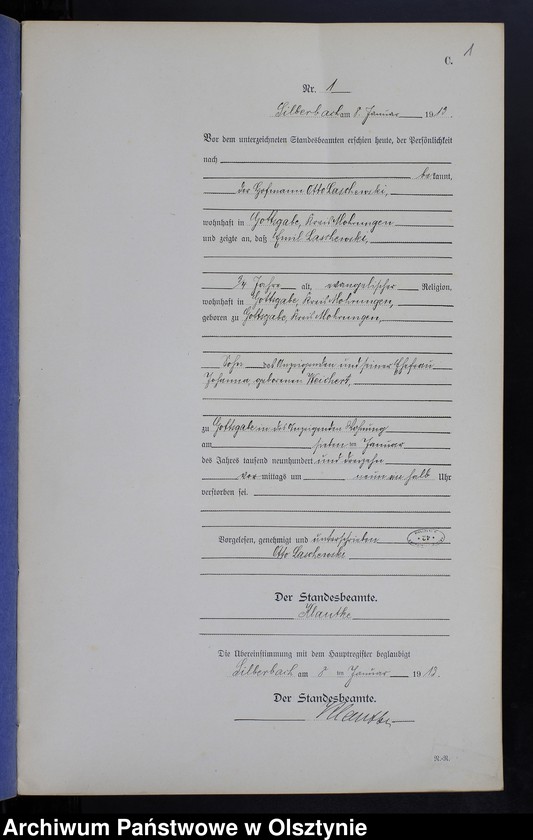 C. 1
Nr. 1
Silberbach am 8. Januar 1913.
Vor dem unterzeichneten Standesbeamten erschien heute, der Persönlichkeit
nach
bekannt,
der Hofmann Otto Laschewski,
wohnhaft in Gottsgabe, Kreis Mohrungen
und zeigte an, daß Emil Laschewski,
24 Jahre alt, evangelischer Religion,
wohnhaft in Gottsgabe, Kreis Mohrungen,
geboren zu Gottsgabe, Kreis Mohrungen,
Sohn des Anzeigenden und seiner Ehefrau
Johanna, geborenen Weichert,
zu Gottsgabe in des Anzeigenden Wohnung
am sieben ten Januar
des Jahres tausend neunhundert und dreizehn
vor mittags um neun ein halb Uhr
verstorben sei.
Vorgelesen, genehmigt und unterschrieben
Otto Laschewski
Der Standesbeamte.
Klautke
Die Übereinstimmung mit dem Hauptregister beglaubigt
Silberbach am 8 ten Januar 1913.
Der Standesbeamte.
Klautke
R.-R.
Archiwum Państwowe w Olsztynie